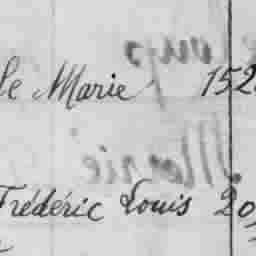 le Marie 152
Frédéric Louis 20